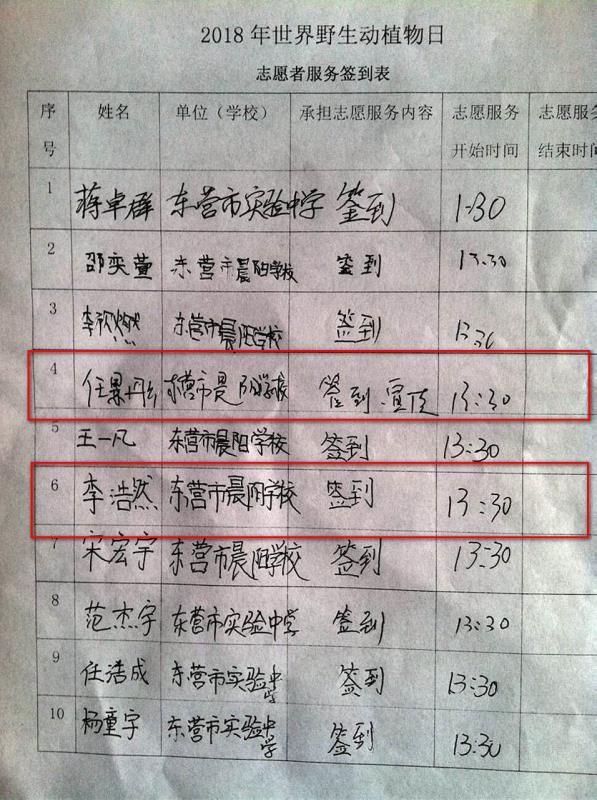 2018 年世界野生动植物日
志愿者服务签到表
序号 姓名 单位（学校） 承担志愿服务内容 志愿服务开始时间 志愿服务结束时间
1 蒋卓群 东营市实验中学 签到 1:30
2 邵奕萱 东营市晨阳学校 签到 13:30
3 李 东营市晨阳学校 签到 13:30
4 任 东营市晨阳学校 签到 宣传 13:30
5 王一凡 东营市晨阳学校 签到 13:30
6 李浩然 东营市晨阳学校 签到 13:30
7 宋宏宇 东营市晨阳学校 签到 13:30
8 范杰宇 东营市实验中学 签到 13:30
9 任浩成 东营市实验中学 签到 13:30
10 杨童宇 东营市实验中学 签到 13:30